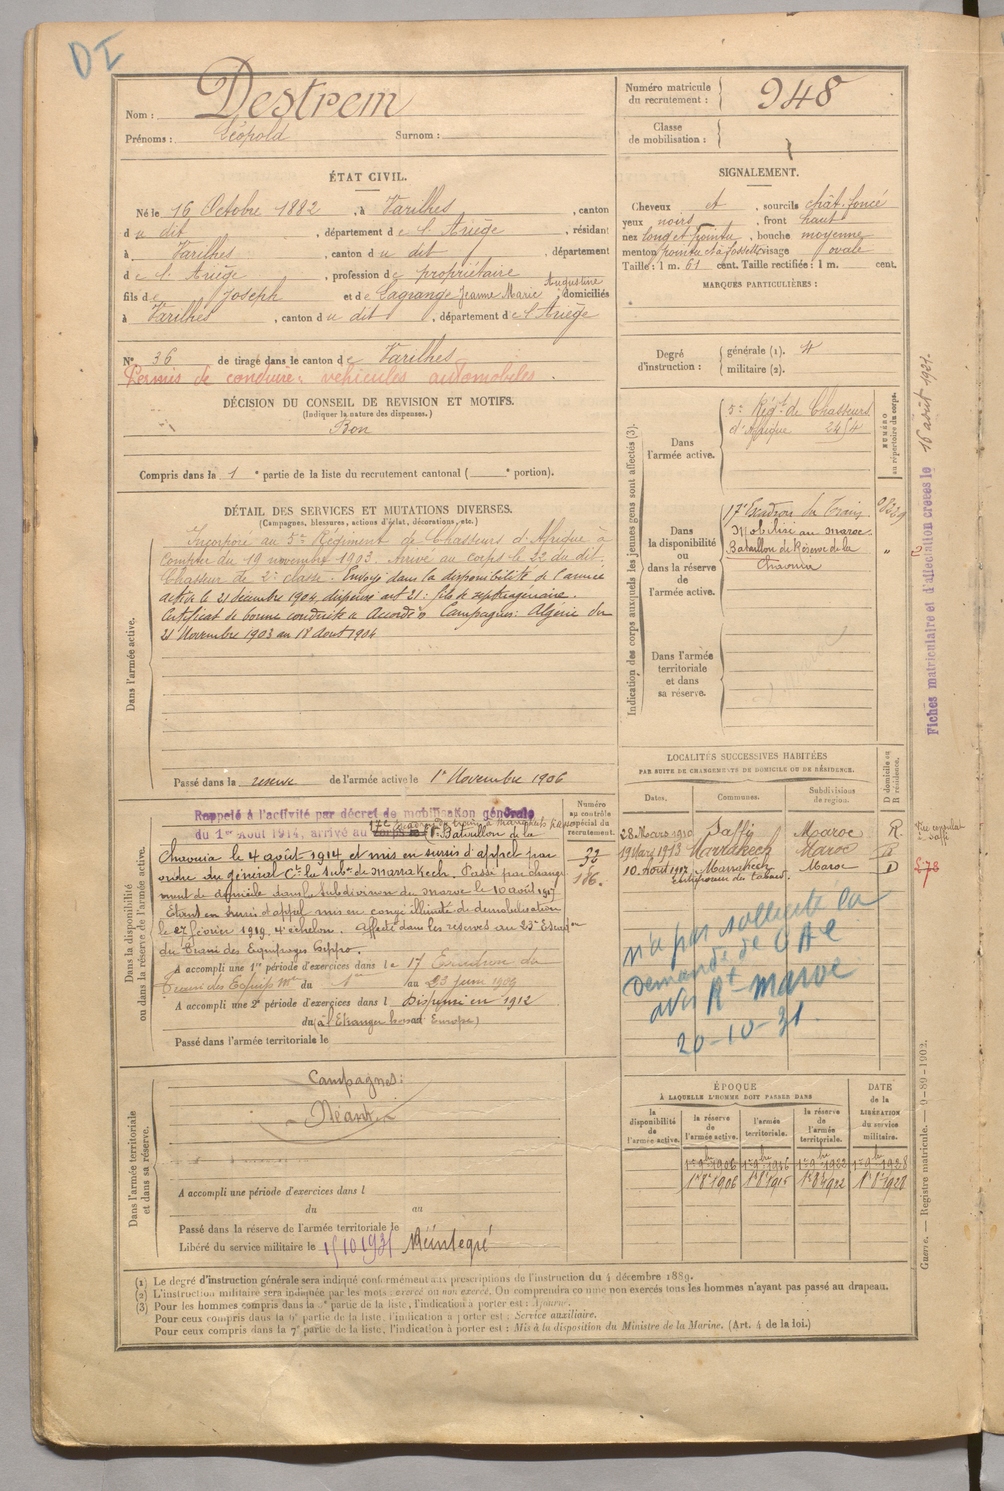 DI
Nom : Destrem
Prénoms : Léopold Surnom :
Numéro matricule du recrutement : 948
Classe de mobilisation :
ÉTAT CIVIL.
Né le 16 Octobre 1882, à Varilhes, canton
du dit, département de l'Ariège, résidant
à Varilhes, canton du dit, département
de l'Ariège, profession de propriétaire
fils de Joseph et de Lagrange Jeanne Marie Augustine, domiciliés
à Varilhes, canton du dit, département de l'Ariège
N° 36 de tirage dans le canton de Varilhes
Permis de conduire: véhicules automobiles.
DÉCISION DU CONSEIL DE REVISION ET MOTIFS.
(Indiquer la nature des dispenses.)
Bon
Compris dans la 1e partie de la liste du recrutement cantonal ( e portion).
SIGNALEMENT.
Cheveux et, sourcils chât. foncé
yeux noirs, front haut
nez long et pointu, bouche moyenne
menton pointu et à fossette visage ovale
Taille : 1 m. 61 cent. Taille rectifiée : 1 m. cent.
MARQUES PARTICULIÈRES :
Degré d'instruction : générale (1). 4
militaire (2).
DÉTAIL DES SERVICES ET MUTATIONS DIVERSES.
(Campagnes, blessures, actions d'éclat, décorations, etc.)
Dans l'armée active.
Incorporé au 5e Régiment de Chasseurs d'Afrique à
compter du 19 novembre 1903. Arrivé au corps le 22 du dit.
Chasseur de 2e classe. Envoyé dans la disponibilité de l'armée
active le 21 décembre 1904, dispensé art 21: fils de septuagénaire.
Certificat de bonne conduite "Accordé". Campagnes: Algérie du
21 Novembre 1903 au 18 Aout 1904
Passé dans la réserve de l'armée active le 1er Novembre 1906
Indication des corps auxquels les jeunes gens sont affectés (3).
NUMÉRO au répertoire du corps.
Dans l'armée active.
5e Régt de Chasseurs
d'Afrique 2454
Dans la disponibilité ou dans la réserve de l'armée active.
17e Escadron du Train
Mobilisé au maroc
Bataillon de Réserve de la
Chaouia
Dans l'armée territoriale et dans sa réserve.
Fiches matriculaire et d'affectation créées le 16 août 1921.
Dans la disponibilité ou dans la réserve de l'armée active.
Numéro au contrôle spécial du recrutement.
32
186.
Rappelé à l'activité par décret de mobilisation générale
du 1er Aout 1914, arrivé au Bataillon de la
Chaouia le 4 août 1914 et mis en sursis d'appel par
ordre du général Ct la Subon de Marrakech. Passé par change
ment de domicile dans la subdivision du Maroc le 10 août 1917
Etant en sursis d'appel mis en congé illimité de démobilisation
le 27 février 1919. 4e échelon. Affecté dans les réserves au 25e Escadron
du Train des Equipages
A accompli une 1re période d'exercices dans le 17e Escadron du
Train des Equip. Mres du 1er au 23 juin 1909
A accompli une 2e période d'exercices dans l Dispensé en 1912
du (à l'Etranger hors d'Europe)
Passé dans l'armée territoriale le
LOCALITÉS SUCCESSIVES HABITÉES
PAR SUITE DE CHANGEMENTS DE DOMICILE OU DE RÉSIDENCE.
Dates. Communes. Subdivisions de région. D domicile ou R résidence.
28 Mars 1910 Saffi Maroc R.
19 Mars 1913 Marrakech Maroc R
10 Août 1917 Marrakech Maroc D
Entreposeur des tabacs
n'a pas sollicité la
demande de CAC
avis Rt maroc
20-10-31.
Dans l'armée territoriale et dans sa réserve.
Campagnes:
Néant
A accompli une période d'exercices dans l
du au
Passé dans la réserve de l'armée territoriale le
Libéré du service militaire le 15/10/1931 Réintégré
ÉPOQUE
À LAQUELLE L'HOMME DOIT PASSER DANS
la disponibilité de l'armée active. la réserve de l'armée active. l'armée territoriale. la réserve de l'armée territoriale. DATE de la LIBÉRATION du service militaire.
1er 9bre 1906 1er 9bre 1916 1er 9bre 1922 1er 9bre 1928
1er 8bre 1906 1er 8bre 1915 1er 8bre 1922 1er 8bre 1928
Guerre. — Registre matricule. — 9-89-1902.
(1) Le degré d'instruction générale sera indiqué conformément aux prescriptions de l'instruction du 4 décembre 1889.
(2) L'instruction militaire sera indiquée par les mots : exercé ou non exercé. On comprendra comme non exercés tous les hommes n'ayant pas passé au drapeau.
(3) Pour les hommes compris dans la 5e partie de la liste, l'indication à porter est : Ajourné.
Pour ceux compris dans la 6e partie de la liste, l'indication à porter est : Service auxiliaire.
Pour ceux compris dans la 7e partie de la liste, l'indication à porter est : Mis à la disposition du Ministre de la Marine. (Art. 4 de la loi.)